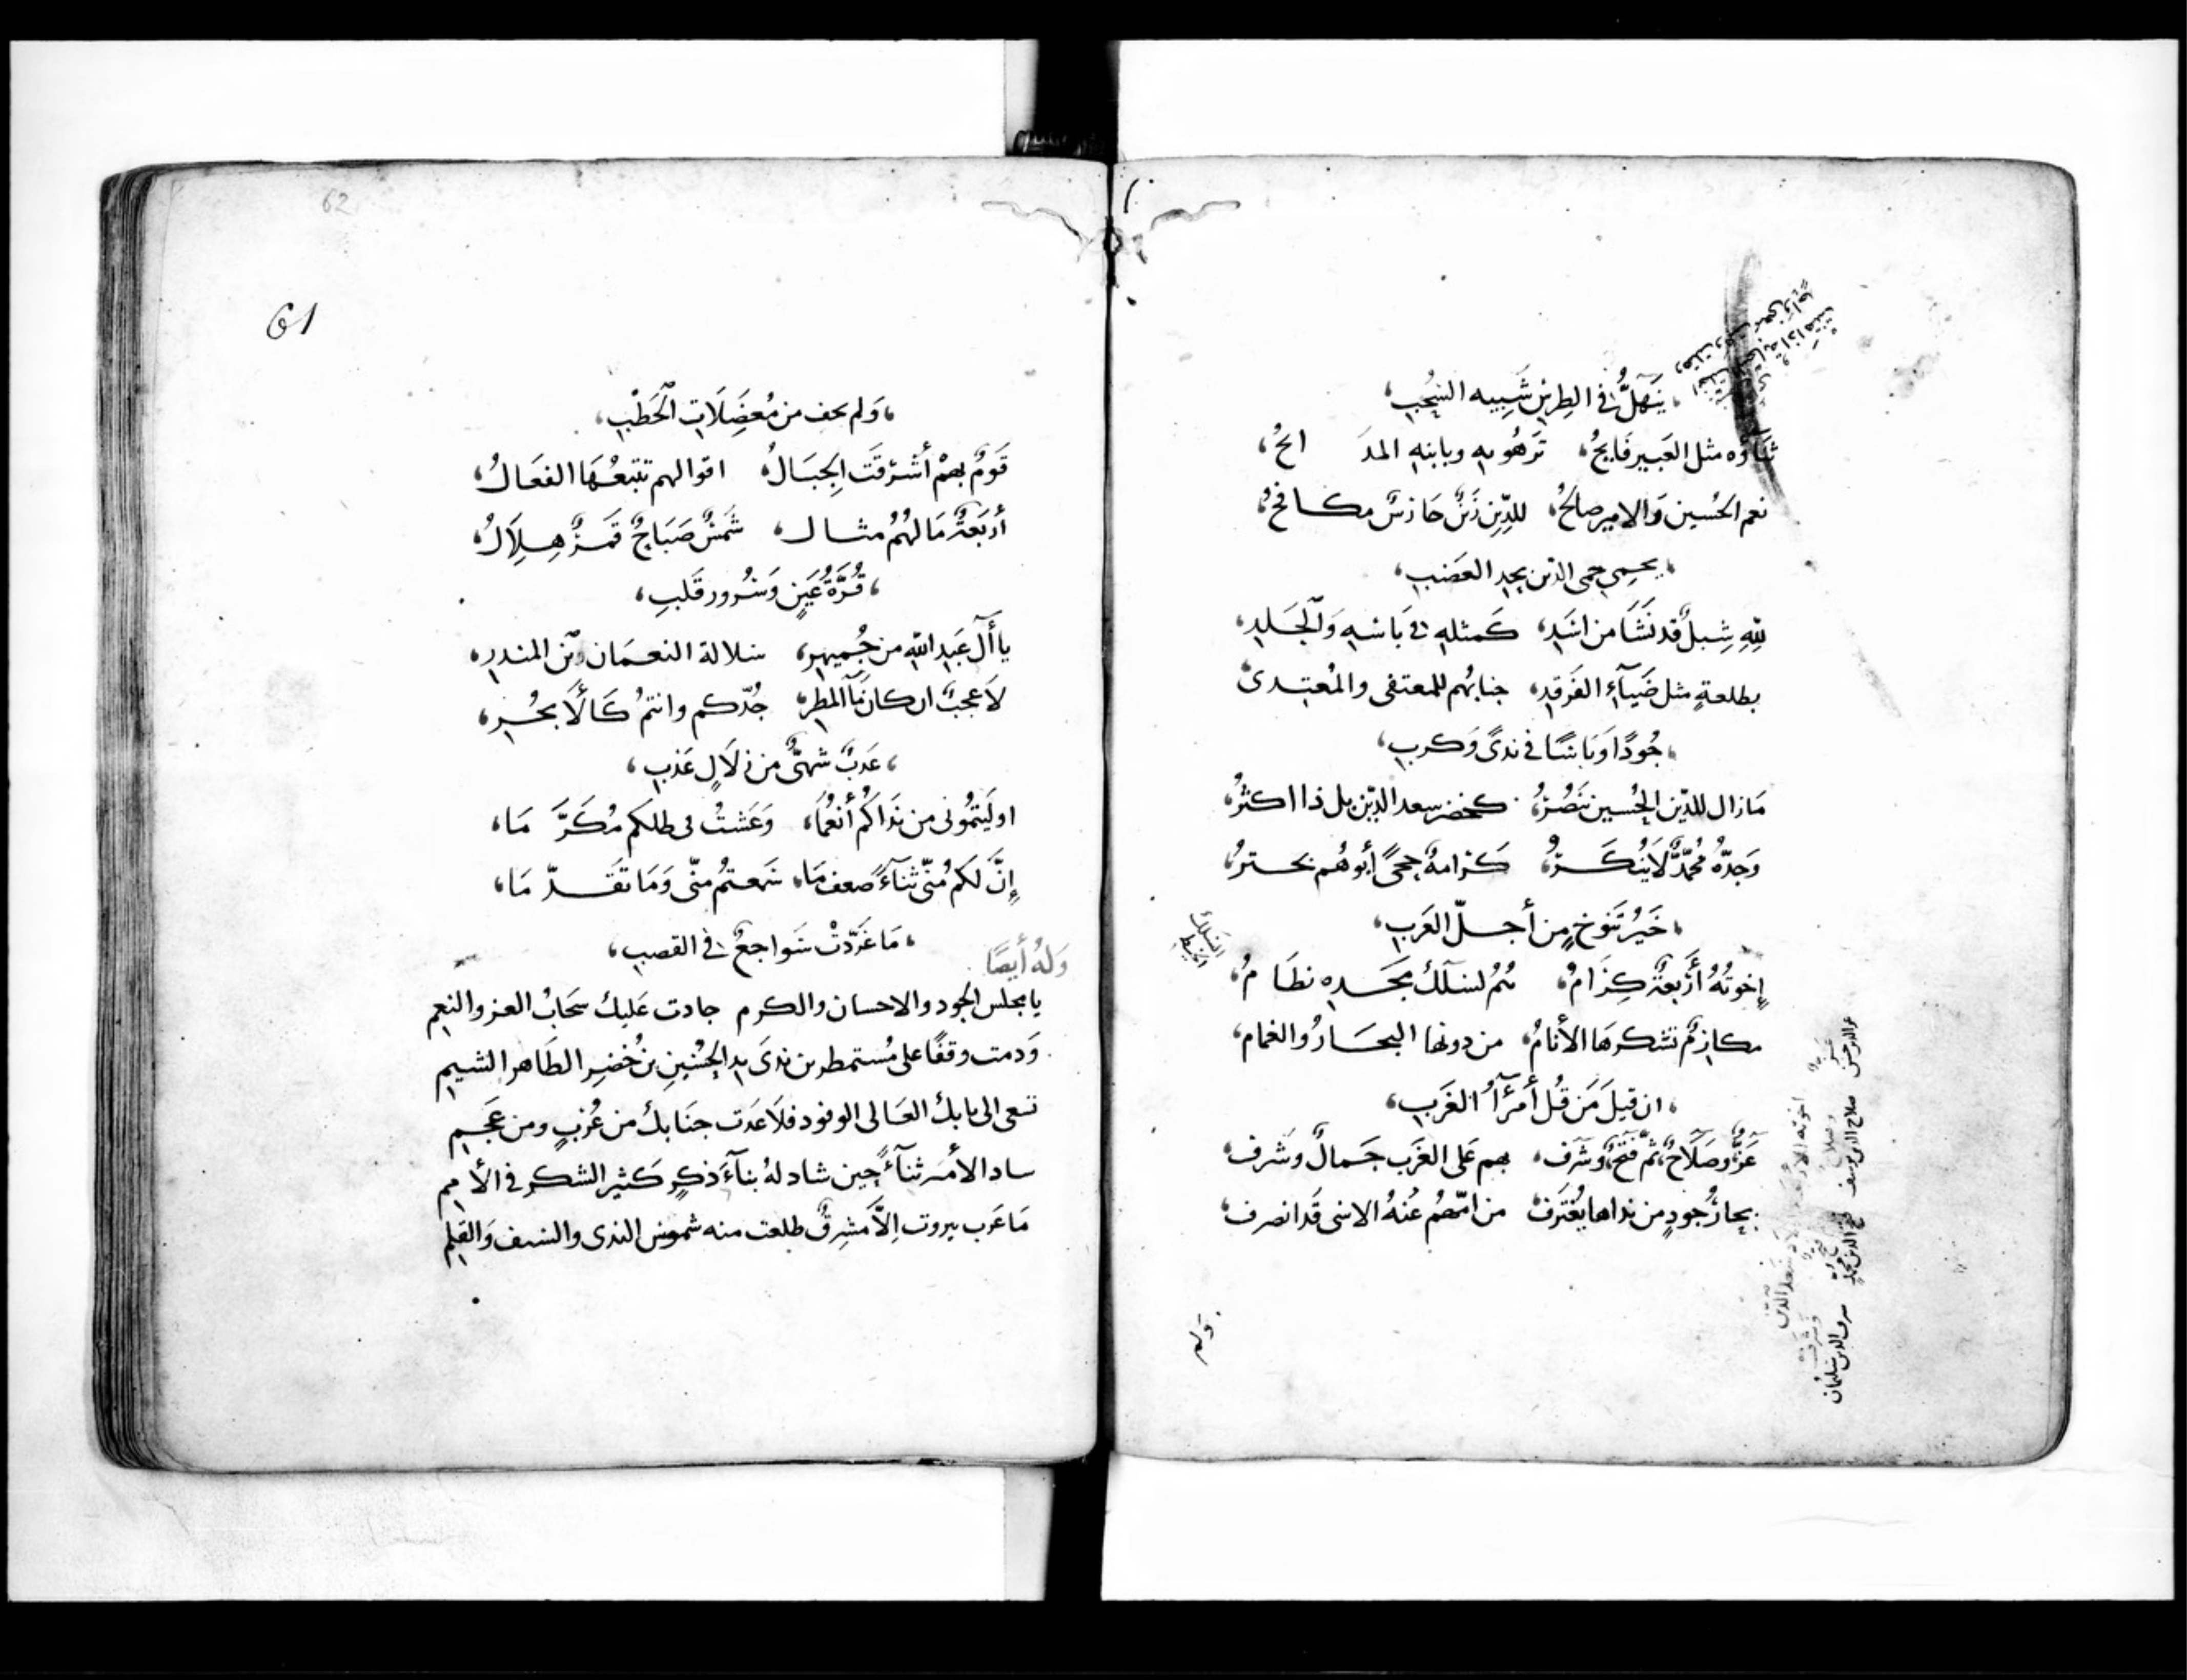 يَنهَلُّ في الطِرسِ شَبيه السُحبِ،
ثناؤه مثل العَبير فَايحُ، تَزهُو به وبابنهِ المدَ ائحُ،
نعم الحُسين وَالامير صالحُ، للدِّين رُكنٌ حَارسٌ مكافحٌ،
، يحمي حمى الدين بحد العضب،
لِلّهِ شِبلٌ قد نَشَا من اسَدِ، كَمثله في بَاسهِ وَالجَلدِ،
بطلعةٍ مثل ضَيآءِ الفَرقدِ، جنابُهم للمعتفى والمُعتدى
، جُودًا وَبَاسًا في ندىً وَكربِ،
مَا زال للدّين الحُسين يَنصُرُ، كخضر سعد الدّين بل ذا اكثرُ،
وَجدّهُ محُمّدٌ لَا يُنكَرُ، كرَامةٌ حجىً أبوهُم بحترُ،
، خَيرُ تَنوخٍ من أجلّ العَرب،
السلك الخيط
إخوتُهُ أرْبعةٌ كِرَامُ، هُم لسلك مجَدهِ نظَامُ،
مكارِمٌ تشكرهَا الأنامُ، من دونها البحَارُ والغمام،
، ان قيلَ مَن قُل أُمَرَآءُ الغَربِ،
عزٌّ وصَلَاحٌ ثمّ فَتحٌ وشَرَف، بهم عَلى الغَرب جَمالٌ وشَرف،
بحارُ جودٍ من نداها يُغتَرَف من امّهُم عَنهُ الاسى قَد انصرف،
عز الدين حسن صلاح الدين يوسف فتح الدين محمد شرف الدين سليمان
اخوته الاربعة اولاد سعد الدين
وله
62
61
، وَلم يخف من مُعضَلَاتِ الخَطْبِ،
قَومٌ بهمْ أشرَقت الجِبَالُ، اقوالهم تتبعُهَا الفعَالُ،
أربَعَةٌ مَا لهُمُ مثال، شَمسٌ صَبَاحٌ قَمرٌ هِلَالُ،
، قُرَّةُ عَينٍ وَسُرور قَلبِ،
يا أَلَ عَبدِ اللهِ من جُميهرِ، سلالة النعمَان بن المندرِ،
لَا عجبٌ ان كان مَآ المطرِ جُدّكم وانتمُ كَالأَبحُرِ،
، عَذبٌ شهيٌّ من زلَالٍ عَذبِ،
اوليتمُوني من نَدَاكُم أنعُمَا، وَعَشتُ في ظلكم مُكَرَّ مَا،
إِنَّ لكم مُنّي ثنآءً ضعف مَا، سَمعتمُ منّي وَمَا تقَدّ مَا،
، مَا غَرَّدتْ سَواجعُ في القصب،
وَلهُ أيضًا
يا مجلس الجود والاحسان والكرم جادت عَليكَ سَحَابُ العز والنعِم
وَدمت وقفًا على مُستمطر من ندىَ يد الحُسَينِ بن خُضرِ الطَاهر الشيمِ
تسعى الى بابك العَالى الوفود فلَا عدَت جنَابك من عُربٍ ومن عَجمِ
ساد الأمَر ثنآءً حين شاد لهُ بنآءَ ذكرٍ كَثير الشكر في الأممِ
مَا غَرب بيروت إِلاَّ مَشرِقٌ طلعت منه شموس الندى والسيف وَالقلِم